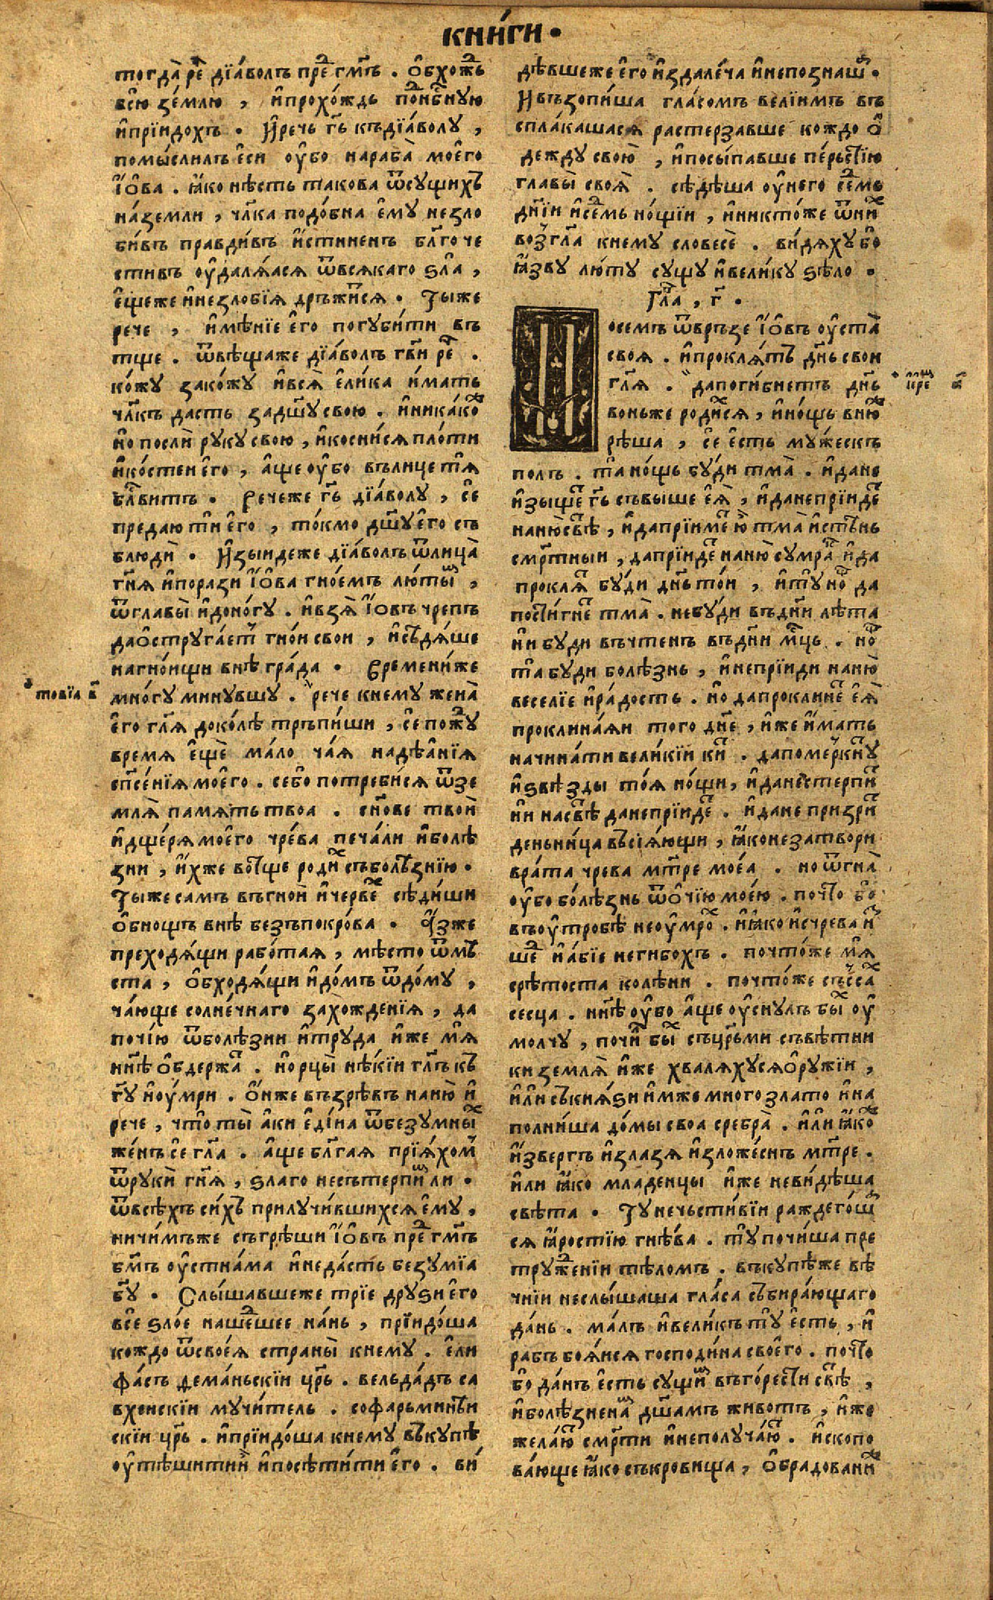 кни́ги ·
тогда̀ рⷱ҇е дїа́волъ прⷣе гм҃ъ . ѻ҆бхожⷣь
всю̀ зе́млю , и҆прохо́ждь пѡⷣнⷭ҇бную
и҆прїидохъ . И҆речь гь҃ къдїа́волу ,
помы́слилъ є҆си ѹ҆бо нараба̀ моего
і҆ѡ҆ва . ꙗ҆ко нѣсть такова ѿсущихъ
на́земли , чл҃ка подо́бна є҆му незло
бивъ правдивъ и҆стиненъ бл҃гоче
стивъ ѹ҆даляѧсѧ ѿвсякаго ѕла̀ ,
є҆щеже и҆незлобїѧ дръжи́тсѧ . Ты́же
рече , и҆мѣнїе є҆го погуби́ти въ
тще . ѿвѣщаже дїа́волъ гв҃и рⷱ҇е .
ко́жу зако́жу и҆всѧ̀ є҆лика и҆мать
чл҃къ дасть задш҃у свою . и҆ника́коⷤ
но послѝ руку свою , и҆косни́сѧ пло́ти
и҆ко́стеи є҆го , а҆ще ѹ҆бо вълице тѧ̀
бл҃витъ . Речеже гь҃ дїа́волу , се
предаю ти є҆го , то́кмо дш҃у є҆го съ
блюдѝ . И҆зыидеже дїа́волъ ѿлица̀
гн҃ѧ и҆порази і҆ѡ҆ва гно́емъ люты̾ ,
ѿглавы̀ и҆доно́гу . и҆взѧ̀ і҆ѡ҆въ чрепъ
даѻстругаетъ гно́и свои , и҆сѣдѧ́ше
нагно́ищи внѣ гра́да . Времени́же
мно́гу минувшу . рече кнему жена̀
товїа в҃
є҆го гл҃ѧ доко́лѣ тръпи́ши , се пожⷣу
время є҆щѐ ма́ло ча́ѧ надѣѧ́нїѧ
сп҃се́нїѧ моего . себо потреби́сѧ ѿзе
млѧ̀ па́мѧть твоа . сн҃ове твоѝ
и҆дще́рѧ моего чре́ва печа́ли и҆болѣ
зни , и҆хже вотще роди́хъ съболѣзнїю .
Ты́же самъ въгноѝ и҆черве́хъ сѣди́ши
ѻ҆бнощъ внѣ безъпокро́ва . А҆зже
преходѧ́щи рабо́таѧ , мѣсто ѿмѣ
ста , ѻ҆бходѧ́щи и҆до́мъ ѿдо́му ,
ча́юще солне́чнаго захо́жденїѧ , да
почїю ѿболѣзни и҆труда и҆же мѧ̀
нн҃ѣ ѻ҆бдержа́тъ . норцы̀ нѣкїи гл҃ъ къ
гу҃ и҆оу́мри . ѻ҆́нже възрѣвъ наню̀ и҆
рече , что̀ ты̀ а҆ки є҆ди́на ѿбезумныхъ
же́нъ се гл҃а . а҆ще бл҃гаѧ прїѧ́хомъ
ѿрукѝ гн҃ѧ , ѕлаго несътерпи́мъ ли .
ѿвсѣхъ си́хъ прилучи́вшихсѧ є҆му ,
ничимъже съгрѣши і҆ѡ҆въ прⷣе гм҃ъ
бм҃ъ ѹ҆стна́ма и҆неда́сть безумїа
бу҃ . Слы́шавшеже трїе друѕи є҆го
всѐ ѕло́е наше́дшее на́нь , прїидо́ша
кождо ѿсвоеѧ̀ страны̀ кнему . є҆ли
фа́съ деманьскїи цр҃ь . вельда́дъ са
вхеискїи мучи́тель . софарьминьи
скїи цр҃ь . и҆прїидо́ша кнему въкупѣ
ѹ҆тѣшитии̾ и҆посѣти́ти є҆го . ви́
дѣвшеже є҆го и҆здале́ча и҆непознаша .
И҆възопи́ша гла́сомъ велїимъ въ
спла́кашасѧ растерзавше кождо ѻ҆
дежду свою̀ , и҆посы́павше пе́рьстїю
главы̀ своѧ̀ . сѣдѣша ѹ҆него сеⷣмь
дні҃и и҆сеⷣмь но́щїи , и҆никто́же ѿниⷯ
возгл҃а кнему словесѐ . ви́дѧху бо
ꙗ҆зву лю́ту сущу и҆вели́ку ѕѣло .
Гла҃ , г҃ .
Посемъ ѿвръзе і҆ѡ҆въ ѹ҆ста̀
своѧ . и҆проклѧ́тъ дн҃ь свои
гл҃ѧ . дапоги́бнетъ дн҃ь
і҆ре к҃
воньже роди́хсѧ , и҆но́щь вню́же
рѣша , се є҆сть му́жескъ
полъ . та но́щь бу́ди тма̀ . и҆дане
и҆зы́щетъ гь҃ съвыше є҆ѧ̀ , и҆данепрїидеⷮ
наню̀ свⷮѣ , и҆дапрїимеⷮ ю҆̀ тма̀ и҆стѣнь
смр҃тныи , дапрїидеⷮ наню̀ сумраⷦ и҆да
проклѧⷮ буди дн҃ь то́и , и҆ту̀ нощь да
пости́гнеⷮ тма̀ . небуди въдн҃и лѣта
ни буди въчтенъ въдн҃и мц҃ь . нощь
та буди болѣзнь , и҆непрїиди наню̀
веселїе и҆ра́дость . но дапроклинеⷮ є҆ѧ̀
проклина́ѧи того дн҃е , и҆же и҆мать
начина́ти вели́кїи киⷮ . дапоме́ркнуⷮ
и҆ѕвѣзды тоѧ̀ но́щи , и҆дане́стерпиⷮ
ни насвⷮѣ данепрїидеⷮ . и҆дане призриⷮ
деньни́ца въсїѧ́ющи , ꙗ҆конезатвори
врата̀ чрева мт҃ре моеа . но ѿгна̀
ѹ҆бо болѣзнь ѿѻ҆чїю моею . почто бо
въѹ҆тробѣ неѹ҆мроⷯ . и҆ꙗ҆ко и҆счрева и҆
шеⷣ и҆а́бїе неги́бохъ . почто́же мѧ̀
срѣтоста колѣни . почто́же съсса́хъ
сесца . нн҃ѣ ѹ҆бо а҆ще ѹ҆снулъ быⷯ ѹ҆
молчу , почи́лъ быⷯ съцр҃ьми съвѣтни
ки землѧ̀ и҆же хвалѧ́хусѧѻ҆ру́жїи ,
и҆лѝ съкнѧ́ѕи и҆мже много злато и҆на
полни́ша до́мы своа сребра̀ . и҆ли ꙗ҆́коⷤ
и҆звергъ и҆злазѧ и҆зложеснъ мт҃ре .
и҆ли ꙗ҆ко младенцы и҆же неви́дѣша
свѣта . Ту нечьсти́вїи раждего́ша
сѧ ꙗ҆́ростїю гнѣва . ту̀ почи́ша пре
тру́женїи тѣломъ . въкупѣже вѣ
чнїи неслы́шаша гла́са събира́ющаго
да́нь . ма́лъ и҆вели́къ ту̀ є҆сть , и҆
рабъ боѧ́исѧ господи́на своего . почто
бо да́нъ є҆сть су́щимъ въго́рести свⷮѣ ,
и҆болѣзненымъ дш҃амъ живо́тъ , и҆же
жела́ютъ смр҃ти и҆неполуча́ютъ . и҆скопо
ва́юще ꙗ҆ко съкровища , ѻ҆бра́довани́же